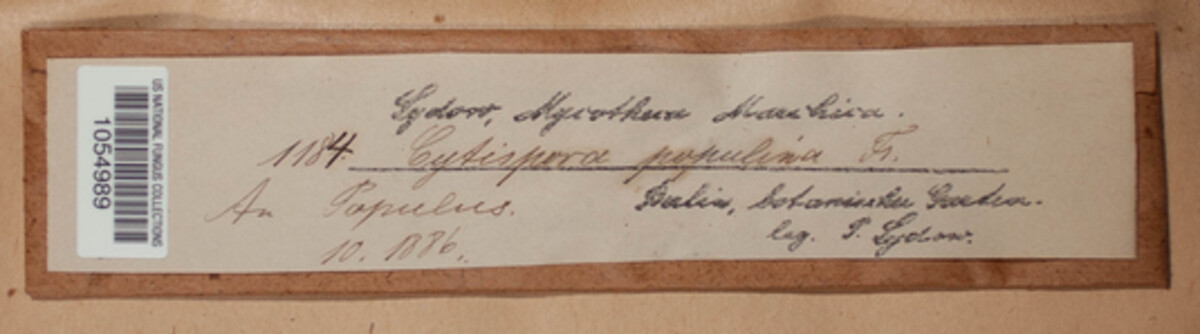 US NATIONAL FUNGUS COLLECTIONS
1054989
Sydow, Mycotheca Marchica.
1184. Cytispora populina Fr.
An Populus.
Berlin, botanischer Garten.
10. 1886.
leg. P. Sydow.